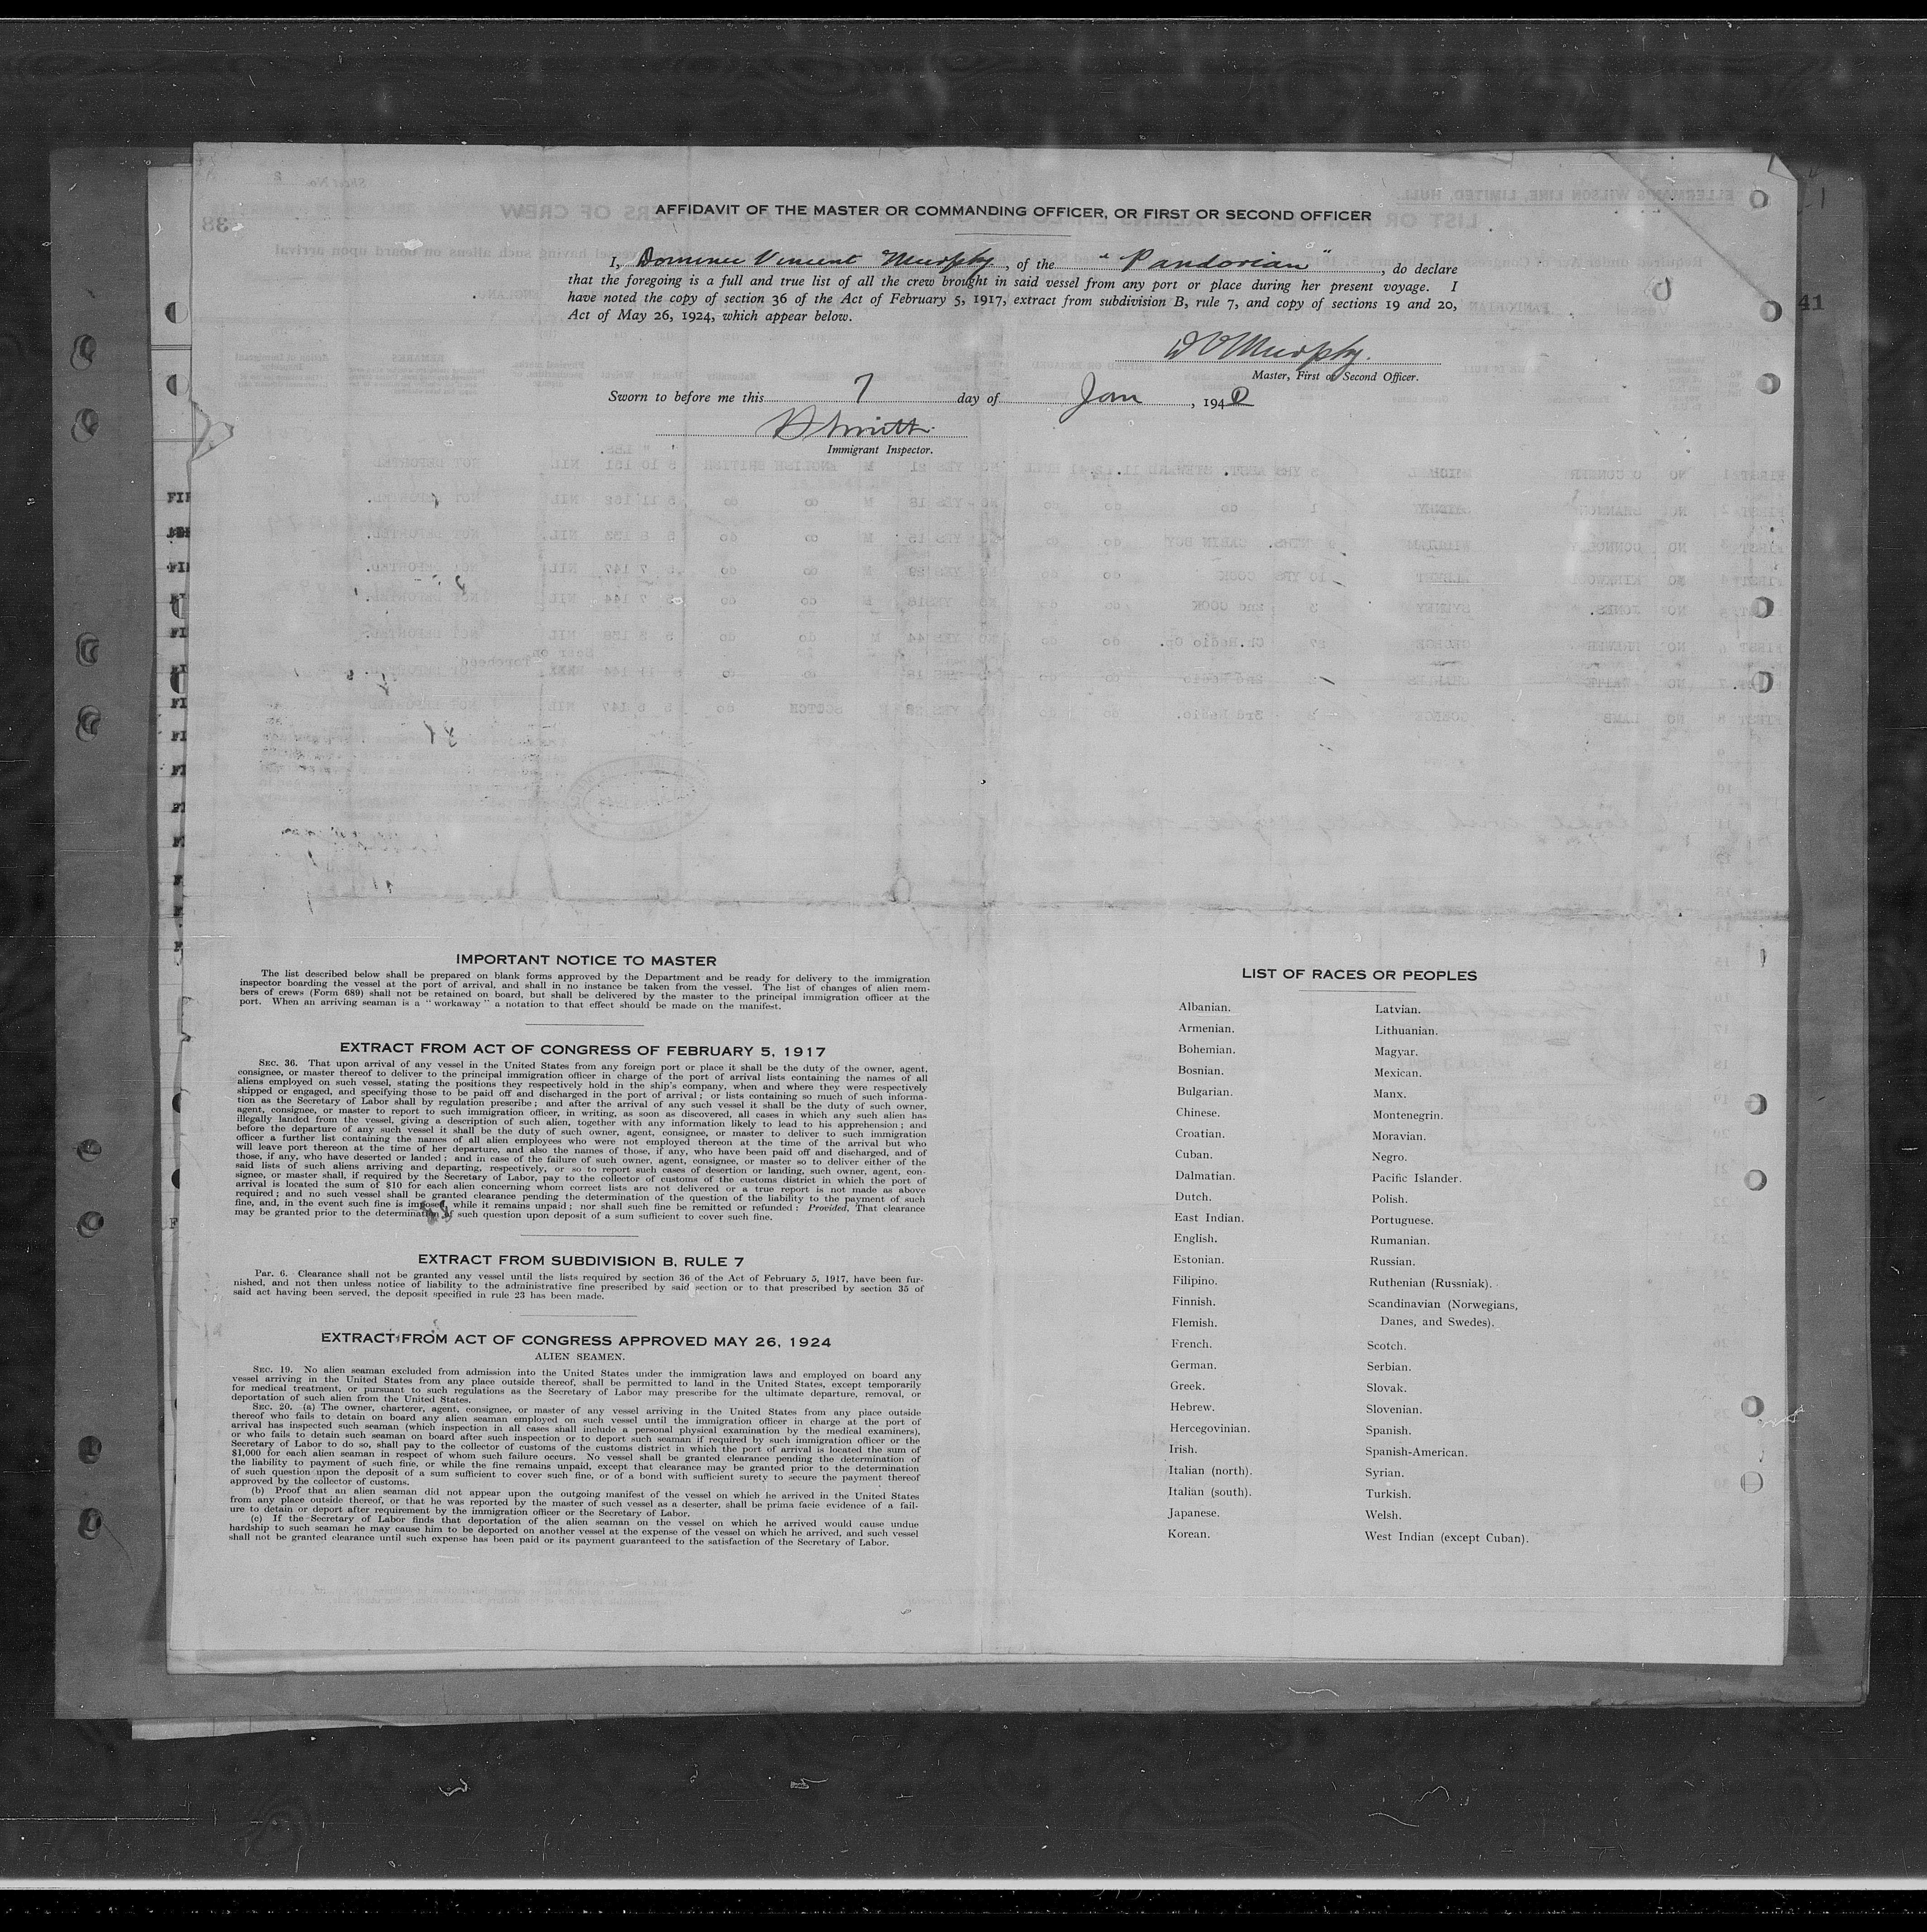 AFFIDAVIT OF THE MASTER OR COMMANDING OFFICER, OR FIRST OR SECOND OFFICER
I, Dominic Vincent Murphy, of the "Pandorian", do declare
that the foregoing is a full and true list of all the crew brought in said vessel from any port or place during her present voyage. I
have noted the copy of section 36 of the Act of February 5, 1917, extract from subdivision B, rule 7, and copy of sections 19 and 20,
Act of May 26, 1924, which appear below.
D V Murphy.
Master, First or Second Officer.
Sworn to before me this 7 day of Jan, 194
Smith
Immigrant Inspector.
41
IMPORTANT NOTICE TO MASTER
The list described below shall be prepared on blank forms approved by the Department and be ready for delivery to the immigration
inspector boarding the vessel at the port of arrival, and shall in no instance be taken from the vessel. The list of changes of alien mem-
bers of crews (Form 689) shall not be retained on board, but shall be delivered by the master to the principal immigration officer at the
port. When an arriving seaman is a "workaway" a notation to that effect should be made on the manifest.
EXTRACT FROM ACT OF CONGRESS OF FEBRUARY 5, 1917
SEC. 36. That upon arrival of any vessel in the United States from any foreign port or place it shall be the duty of the owner, agent,
consignee, or master thereof to deliver to the principal immigration officer in charge of the port of arrival lists containing the names of all
aliens employed on such vessel, stating the positions they respectively hold in the ship's company, when and where they were respectively
shipped or engaged, and specifying those to be paid off and discharged in the port of arrival; or lists containing so much of such informa-
tion as the Secretary of Labor shall by regulation prescribe; and after the arrival of any such vessel it shall be the duty of such owner,
agent, consignee, or master to report to such immigration officer, in writing, as soon as discovered, all cases in which any such alien has
illegally landed from the vessel, giving a description of such alien, together with any information likely to lead to his apprehension; and
before the departure of any such vessel it shall be the duty of such owner, agent, consignee, or master to deliver to such immigration
officer a further list containing the names of all alien employees who were not employed thereon at the time of the arrival but who
will leave port thereon at the time of her departure, and also the names of those, if any, who have been paid off and discharged, and of
those, if any, who have deserted or landed; and in case of the failure of such owner, agent, consignee, or master so to deliver either of the
said lists of such aliens arriving and departing, respectively, or so to report such cases of desertion or landing, such owner, agent, con-
signee, or master shall, if required by the Secretary of Labor, pay to the collector of customs of the customs district in which the port of
arrival is located the sum of $10 for each alien concerning whom correct lists are not delivered or a true report is not made as above
required; and no such vessel shall be granted clearance pending the determination of the question of the liability to the payment of such
fine, and, in the event such fine is imposed, while it remains unpaid; nor shall such fine be remitted or refunded: Provided, That clearance
may be granted prior to the determination of such question upon deposit of a sum sufficient to cover such fine.
EXTRACT FROM SUBDIVISION B, RULE 7
PAR. 6. Clearance shall not be granted any vessel until the lists required by section 36 of the Act of February 5, 1917, have been fur-
nished, and not then unless notice of liability to the administrative fine prescribed by said section or to that prescribed by section 35 of
said act having been served, the deposit specified in rule 23 has been made.
EXTRACT FROM ACT OF CONGRESS APPROVED MAY 26, 1924
ALIEN SEAMEN.
SEC. 19. No alien seaman excluded from admission into the United States under the immigration laws and employed on board any
vessel arriving in the United States from any place outside thereof, shall be permitted to land in the United States, except temporarily
for medical treatment, or pursuant to such regulations as the Secretary of Labor may prescribe for the ultimate departure, removal, or
deportation of such alien from the United States.
SEC. 20. (a) The owner, charterer, agent, consignee, or master of any vessel arriving in the United States from any place outside
thereof who fails to detain on board any alien seaman employed on such vessel until the immigration officer in charge at the port of
arrival has inspected such seaman (which inspection in all cases shall include a personal physical examination by the medical examiners),
or who fails to detain such seaman on board after such inspection or to deport such seaman if required by such immigration officer or the
Secretary of Labor to do so, shall pay to the collector of customs of the customs district in which the port of arrival is located the sum of
$1,000 for each alien seaman in respect of whom such failure occurs. No vessel shall be granted clearance pending the determination of
the liability to payment of such fine, or while the fine remains unpaid, except that clearance may be granted prior to the determination
of such question upon the deposit of a sum sufficient to cover such fine, or of a bond with sufficient surety to secure the payment thereof
approved by the collector of customs.
(b) Proof that an alien seaman did not appear upon the outgoing manifest of the vessel on which he arrived in the United States
from any place outside thereof, or that he was reported by the master of such vessel as a deserter, shall be prima facie evidence of a fail-
ure to detain or deport after requirement by the immigration officer or the Secretary of Labor.
(c) If the Secretary of Labor finds that deportation of the alien seaman on the vessel on which he arrived would cause undue
hardship to such seaman he may cause him to be deported on another vessel at the expense of the vessel on which he arrived, and such vessel
shall not be granted clearance until such expense has been paid or its payment guaranteed to the satisfaction of the Secretary of Labor.
LIST OF RACES OR PEOPLES
Albanian.
Armenian.
Bohemian.
Bosnian.
Bulgarian.
Chinese.
Croatian.
Cuban.
Dalmatian.
Dutch.
East Indian.
English.
Estonian.
Filipino.
Finnish.
Flemish.
French.
German.
Greek.
Hebrew.
Hercegovinian.
Irish.
Italian (north).
Italian (south).
Japanese.
Korean.
Latvian.
Lithuanian.
Magyar.
Mexican.
Manx.
Montenegrin.
Moravian.
Negro.
Pacific Islander.
Polish.
Portuguese.
Rumanian.
Russian.
Ruthenian (Russniak).
Scandinavian (Norwegians,
Danes, and Swedes).
Scotch.
Serbian.
Slovak.
Slovenian.
Spanish.
Spanish-American.
Syrian.
Turkish.
Welsh.
West Indian (except Cuban).